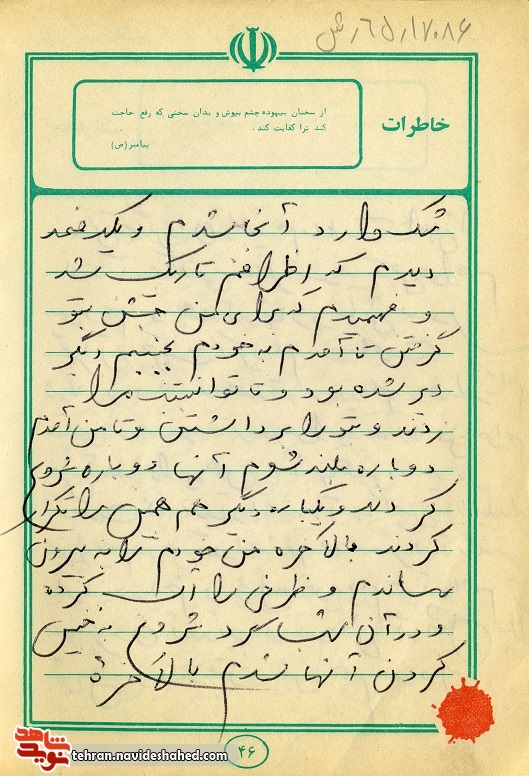 ۶۵٫۱۷۰۸۶ رش
خاطرات
از سخنان بیهوده چشم بپوش و بدان سخنی که رفع حاجت
کند ترا کفایت کند.
پیامبر(ص)
شک وارد آنجا شدم و یکدفعه
دیدم که اطرافم تاریک شد
و فهمیدم که برای من جشن پتو
گرفتن تا آمدم به خودم بجنبم دیگر
دیر شده بود و تا توانستند مرا
زدند و پتو را برداشتن و تا من آمدم
دوباره بلند شوم آنها دوباره شروع
کردند و یکباره دیگر هم همین را تکرار
کردند بالاخره من خودم را به بیرون
رساندم و ظرفی را آب کرده
و در آن هوا سرد شروع به خیس
کردن آنها شدم بالاخره
۴۶
شاهد
نوید
tehran.navideshahed.com